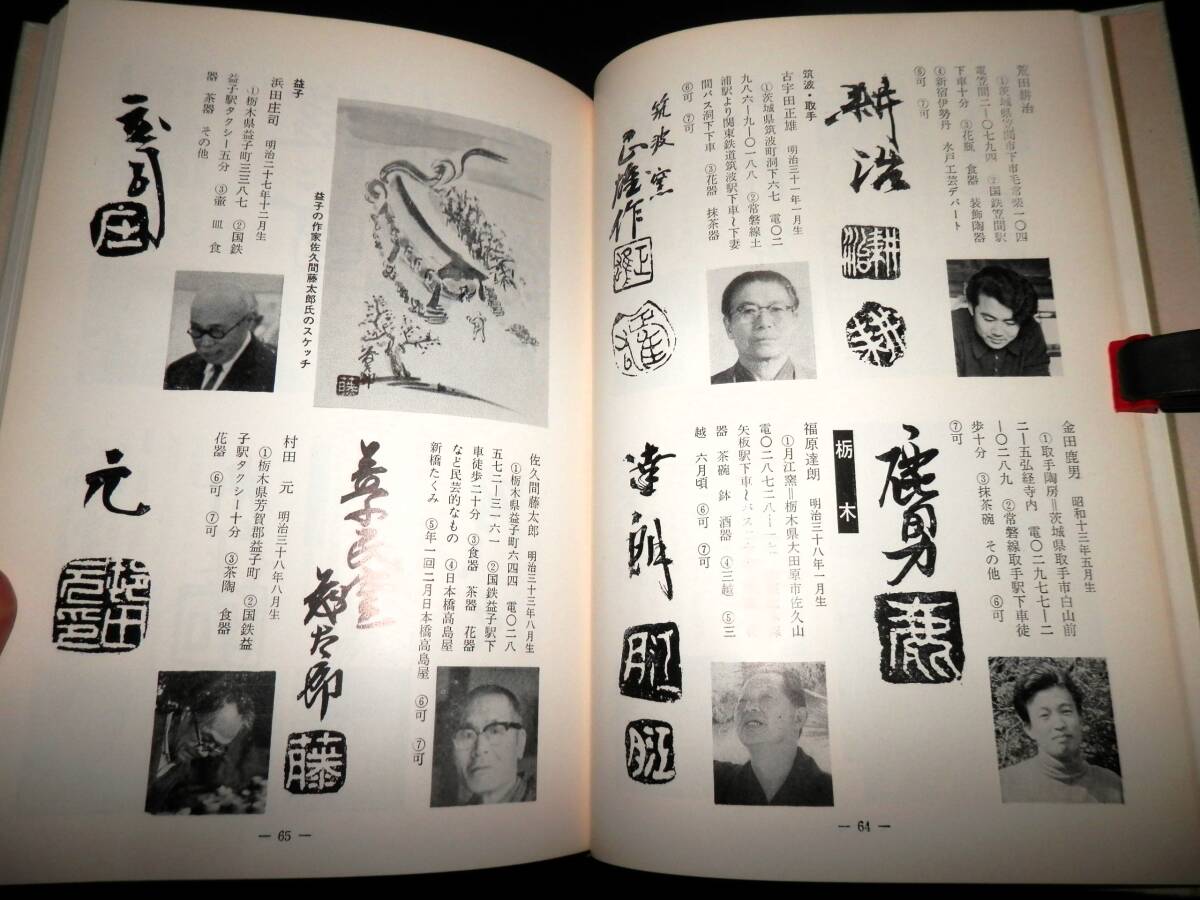 荒田耕治
①茨城県笠間市下市毛常楽一〇四
電笠間二―〇七九四 ②国鉄笠間駅
下車十分 ③花瓶 食器 装飾陶器
④新宿伊勢丹 水戸工芸デパート
⑥可 ⑦可
耕治
耕治
耕
筑波・取手
古宇田正雄 明治三十一年一月生
①茨城県筑波町洞下六七 電〇二
九八六―九―〇一八八 ②常磐線土
浦駅より関東鉄道筑波駅下車~下妻
間バス洞下下車 ③花器 抹茶器
⑥可 ⑦可
筑波窯
正雄作
金田鹿男 昭和十三年五月生
①取手陶房=茨城県取手市白山前
二―五弘経寺内 電〇二九七七―二
―〇二八九 ②常磐線取手駅下車徒
歩十分 ③抹茶碗 その他 ⑥可
⑦可
鹿男
鹿
栃木
福原達朗 明治三十八年一月生
①月江窯=栃木県大田原市佐久山
電〇二八七二八―一
矢板駅下車~バス
器 茶碗 鉢 酒器 ④三越 ⑤三
越 六月頃 ⑥可 ⑦可
達朗
― 64 ―
益子の作家佐久間藤太郎氏のスケッチ
藤
益子
浜田庄司 明治二十七年十二月生
①栃木県益子町三三八七 ②国鉄
益子駅タクシー五分 ③壷 皿 食
器 茶器 その他
庄司
佐久間藤太郎 明治三十三年八月生
①栃木県益子町六四四 電〇二八
五七二―三一六一 ②国鉄益子駅下
車徒歩二十分 ③食器 茶器 花器
など民芸的なもの ④日本橋高島屋
新橋たくみ ⑤年一回二月日本橋高島屋 ⑥可 ⑦可
益子民窯
藤太郎
藤
村田 元 明治三十八年八月生
①栃木県芳賀郡益子町 ②国鉄益
子駅タクシー十分 ③茶陶 食器
花器 ⑥可 ⑦可
元
― 65 ―